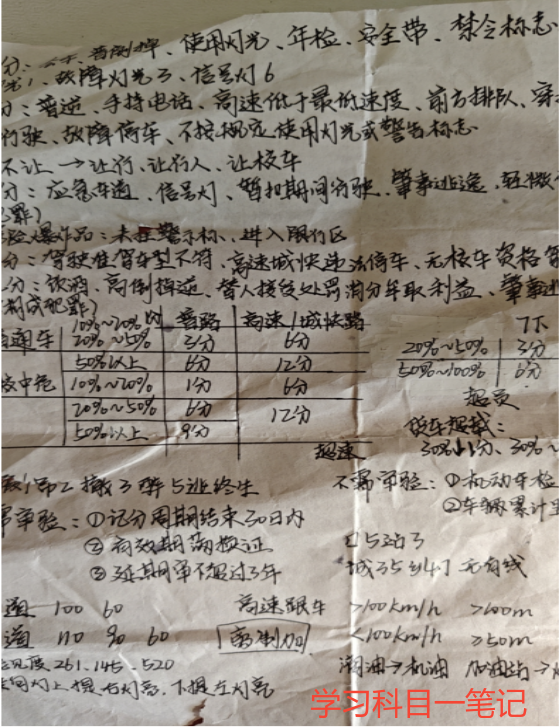 分：普通掉、使用灯光、年检、安全带、禁令标志
故障灯光3、信号灯6
分：普逆、手持电话、高速低于最低速度、前方排队、穿
行驶、故障停车、不按规定使用灯光或警告标志
不让→让行、让行人、让校车
分：应急车道、信号灯、暂扣期间驾驶、肇事逃逸，轻微
犯罪）
险爆炸品：未挂警示标、进入限行区
分：驾驶准驾车型不符、高速城快违法停车、无校车资格驾
分：饮酒、高倒掉逆、替人接受处罚消分牟取利益、肇事逃
构成犯罪）
10%~20% 普路 高速/城快路
普通车 20%~50% 3分 6分
50%以上 6分 12分
校中危 10%~20% 1分 6分
20%~50% 6分 12分
50%以上 9分
超速
7下
20%~50% 3分
50%~100% 6分
超员
货车超载：
30%以1分、30%~
1吊2撤3醉5逃终生
审验：①记分周期结束30日内
②有效期满换证
③延期审不超过3年
不需审验：①机动车检
②车辆累计
口5站3
城35乡47 无有线
道 100 60
道 110 90 60
高速跟车 >100km/h >100m
<100km/h ≥50m
离制加
见度 261、145、520
灯上提右灯亮，下提左灯亮
漏油→机油 加油站→
学习科目一笔记